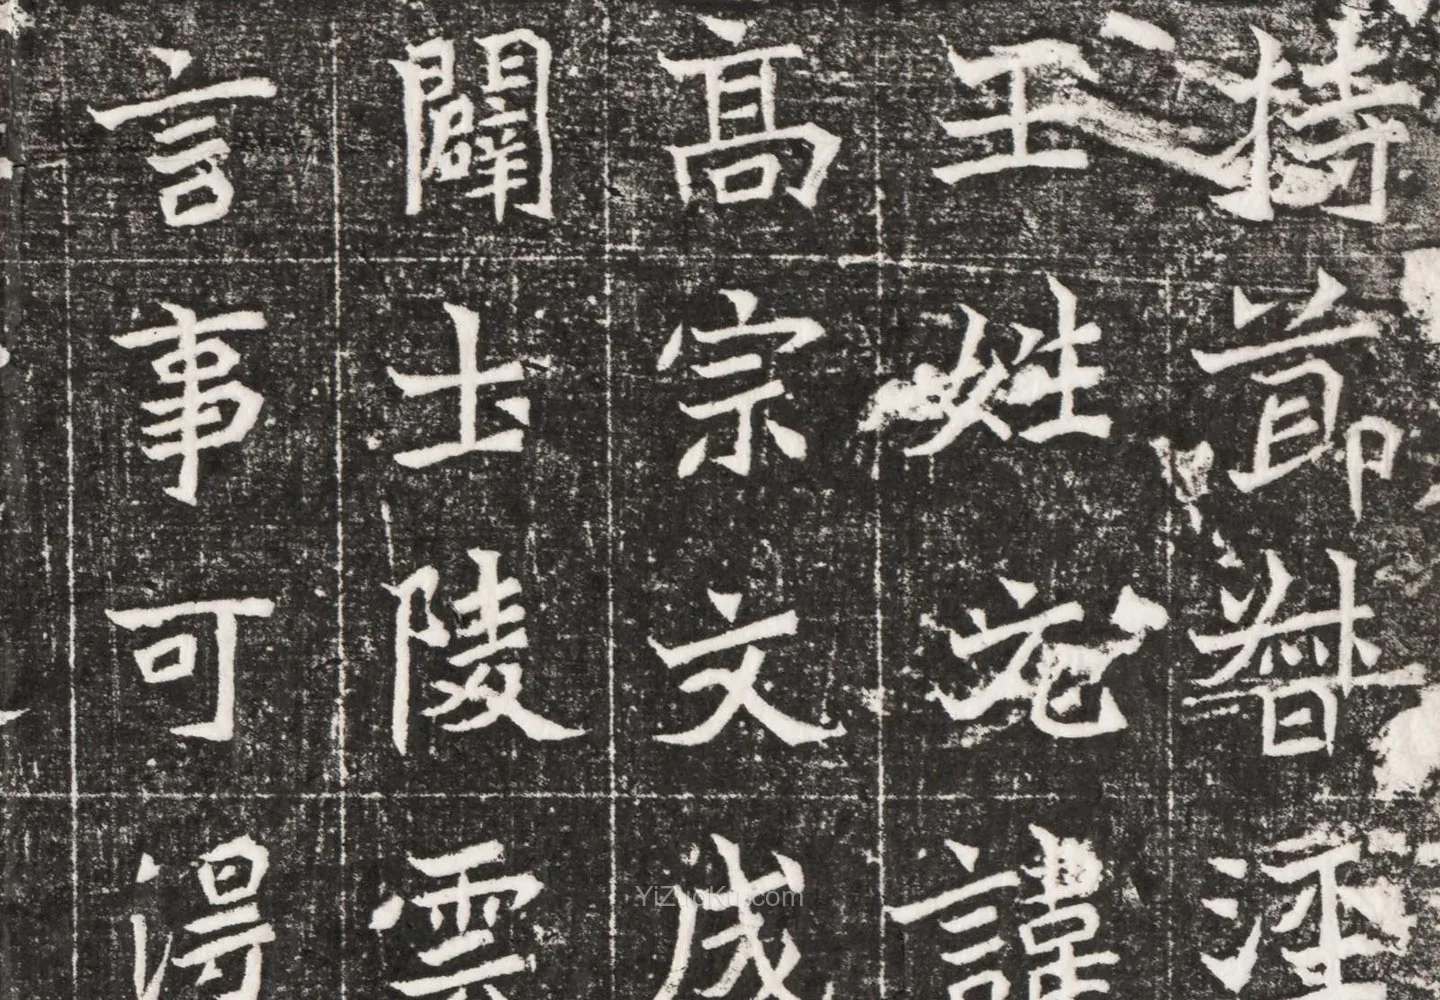 持節督涇
王姓元諱
高宗文成
闢土陵雲
言事可得
YiZuoKu.com